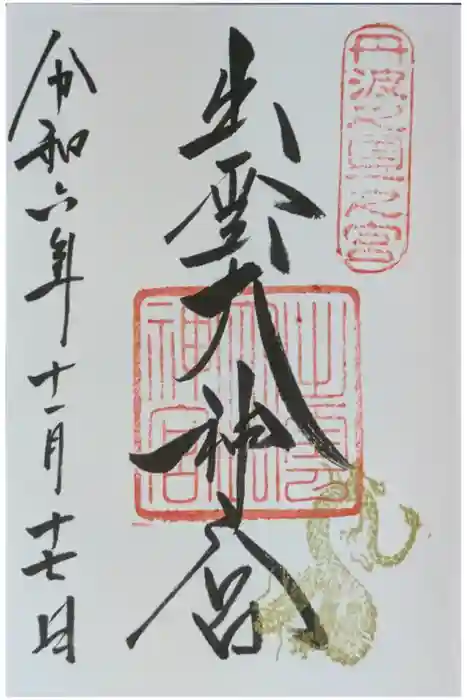 丹波國一之宮
出雲大神宮
出雲大神宮
令和六年十一月十七日